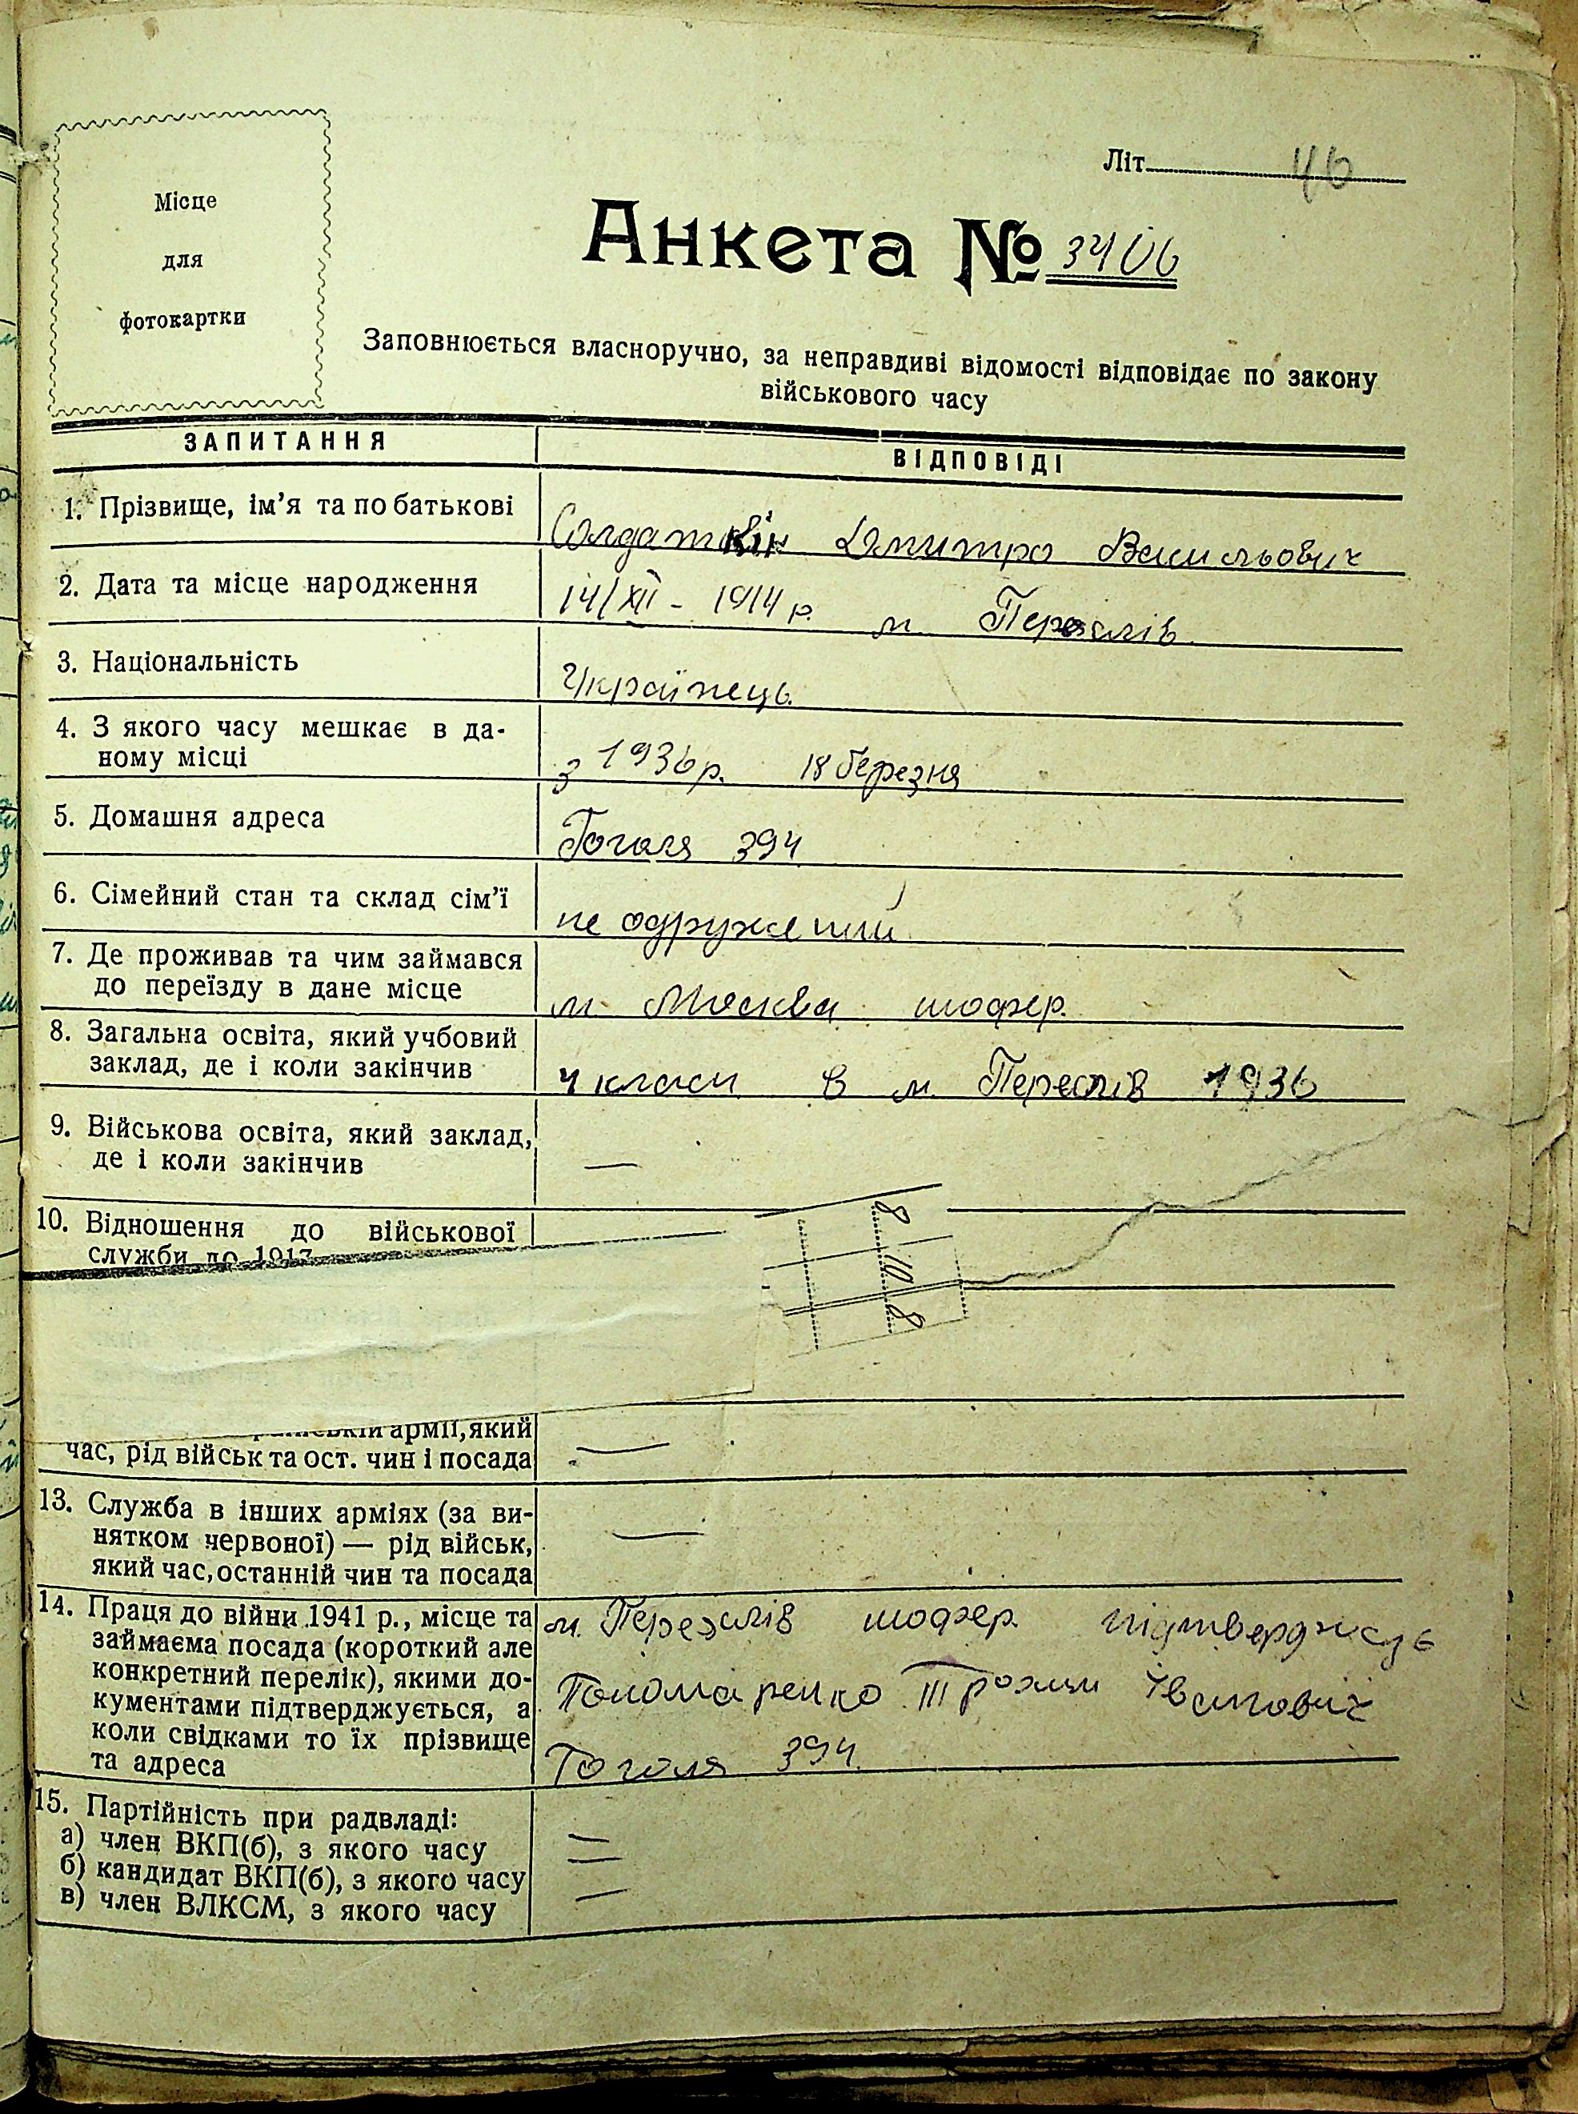 Місце
для
фотокартки
Літ. 46
Анкета № 3406
Заповнюється власноручно, за неправдиві відомості відповідає по закону
військового часу
ЗАПИТАННЯ ВІДПОВІДІ
1. Прізвище, ім'я та по батькові Дмитро Васильович
2. Дата та місце народження 14/XII - 1914 р. м.
3. Національність Українець.
4. З якого часу мешкає в да-
ному місці з 1936 р. 18 березня
5. Домашня адреса Гоголя 394
6. Сімейний стан та склад сім'ї не одружений
7. Де проживав та чим займався
до переїзду в дане місце м. Москва шофер.
8. Загальна освіта, який учбовий
заклад, де і коли закінчив 4 класи в м. 1936
9. Військова освіта, який заклад,
де і коли закінчив —
10. Відношення до військової
служби до 1917 —
8
10
8
армії, який
час, рід військ та ост. чин і посада —
13. Служба в інших арміях (за ви-
нятком червоної) — рід військ,
який час, останній чин та посада —
14. Праця до війни 1941 р., місце та
займаєма посада (короткий але
конкретний перелік), якими до-
кументами підтверджується, а
коли свідками то їх прізвище
та адреса
м. шофер.
Пономаренко Іванович
Гоголя 394.
15. Партійність при радвладі:
а) член ВКП(б), з якого часу —
б) кандидат ВКП(б), з якого часу —
в) член ВЛКСМ, з якого часу —